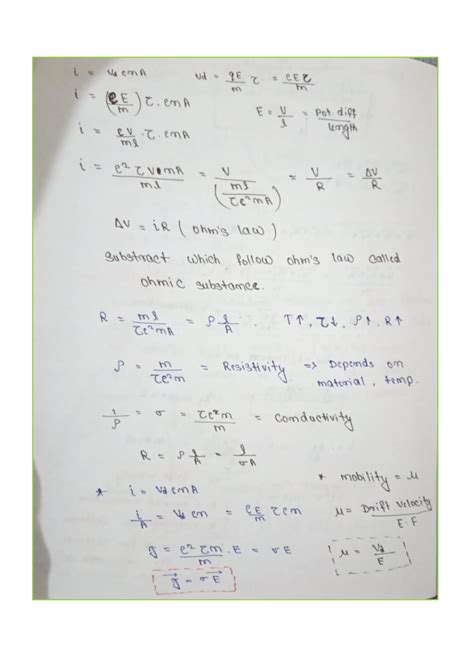 i = vd enA     vd = qE/m τ = eEτ/m
i = (eE/m) τ. enA     E = V/l = Pot. diff/length
i = eV/ml . τ. enA
i = e²τVnA/ml = V/(ml/τe²nA) = V/R = ΔV/R
ΔV = iR ( ohm's law )
Substract which follow ohm's law called
ohmic substance.
R = ml/τe²nA = ρ l/A .   T↑, τ↓, ρ↑, R↑
ρ = m/τe²n = Resistivity => Depends on
material, temp.
1/ρ = σ = τe²n/m = Conductivity
R = ρ l/A = l/σA
* i = vd enA
i/A = vd en = eE/m τen
j = e²τn/m . E = σE
j⃗ = σE⃗
* mobility = μ
μ = Drift velocity/E.F
μ = vd/E